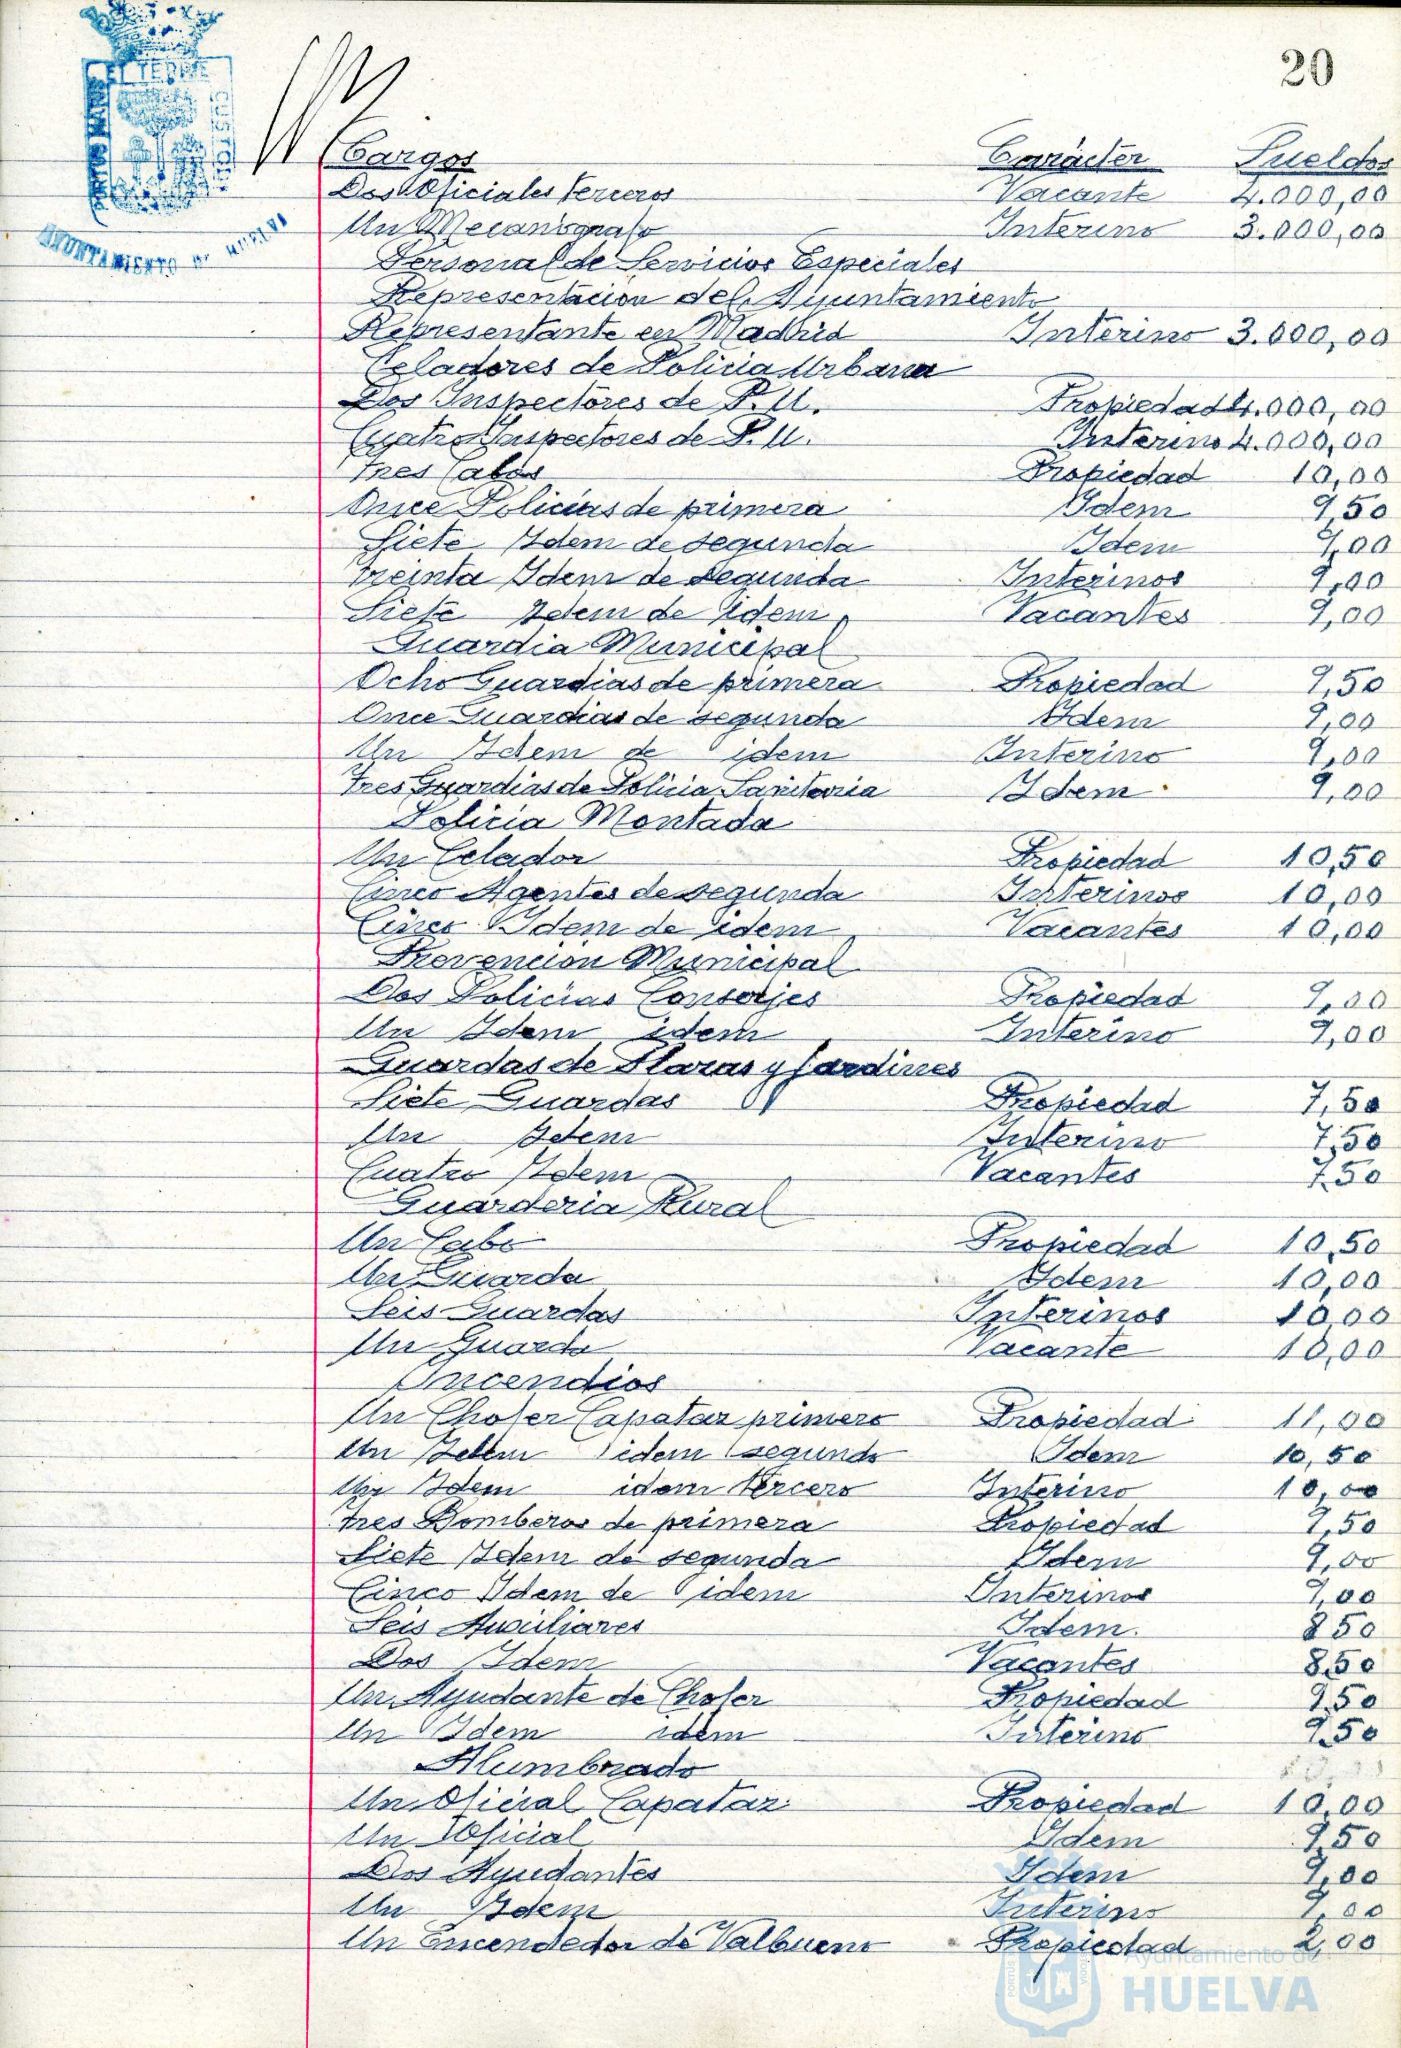 20
PORTUS MARIS
ET TERRE
CUSTODIA
AYUNTAMIENTO DE HUELVA
Cargos Carácter Sueldos
Dos Oficiales terceros Vacante 4.000,00
Un Mecanógrafo Interino 3.000,00
Personal de Servicios Especiales
Representación del Ayuntamiento
Representante en Madrid Interino 3.000,00
Celadores de Policia Urbana
Dos Inspectores de P. U. Propiedad 4.000,00
Cuatro Inspectores de P. U. Interino 4.000,00
Tres Cabos Propiedad 10,00
Once Policías de primera Idem 9,50
Siete Idem de segunda Idem 9,00
Treinta Idem de segunda Interinos 9,00
Siete Idem de idem Vacantes 9,00
Guardia Municipal
Ocho Guardias de primera Propiedad 9,50
Once Guardias de segunda Idem 9,00
Un Idem de idem Interino 9,00
Tres Guardias de Policia Sanitaria Idem 9,00
Policia Montada
Un Celador Propiedad 10,50
Cinco Agentes de segunda Interinos 10,00
Cinco Idem de idem Vacantes 10,00
Prevención Municipal
Dos Policías Conserjes Propiedad 9,00
Un Idem idem Interino 9,00
Guardas de Plazas y Jardines
Siete Guardas Propiedad 7,50
Un Idem Interino 7,50
Cuatro Idem Vacantes 7,50
Guarderia Rural
Un Cabo Propiedad 10,50
Un Guarda Idem 10,00
Seis Guardas Interinos 10,00
Un Guarda Vacante 10,00
Incendios
Un Chofer Capataz primero Propiedad 11,00
Un Idem idem segundo Idem 10,50
Un Idem idem tercero Interino 10,00
Tres Bomberos de primera Propiedad 9,50
Siete Idem de segunda Idem 9,00
Cinco Idem de idem Interinos 9,00
Seis Auxiliares Idem. 8,50
Dos Idem Vacantes 8,50
Un Ayudante de Chofer Propiedad 9,50
Un Idem idem Interino 9,50
Alumbrado
Un Oficial Capataz Propiedad 10,00
Un Oficial Idem 9,50
Dos Ayudantes Idem 9,00
Un Idem Interino 9,00
Un Encendedor de Valbueno Propiedad 2,00
Ayuntamiento de
HUELVA